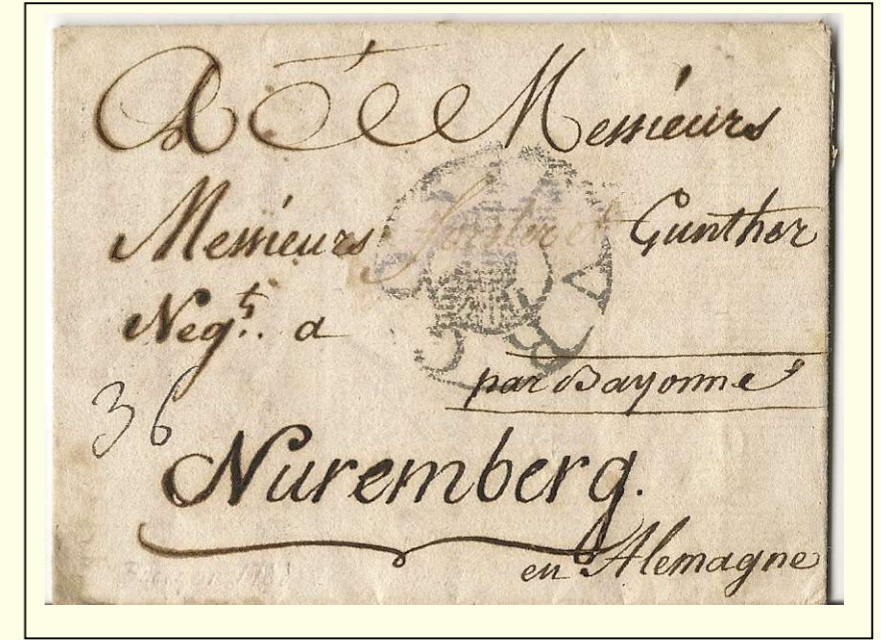 A Messieurs
Messieurs Forster et Gunther
Neg.t a
par Bayonne
36
Nuremberg.
en Alemagne